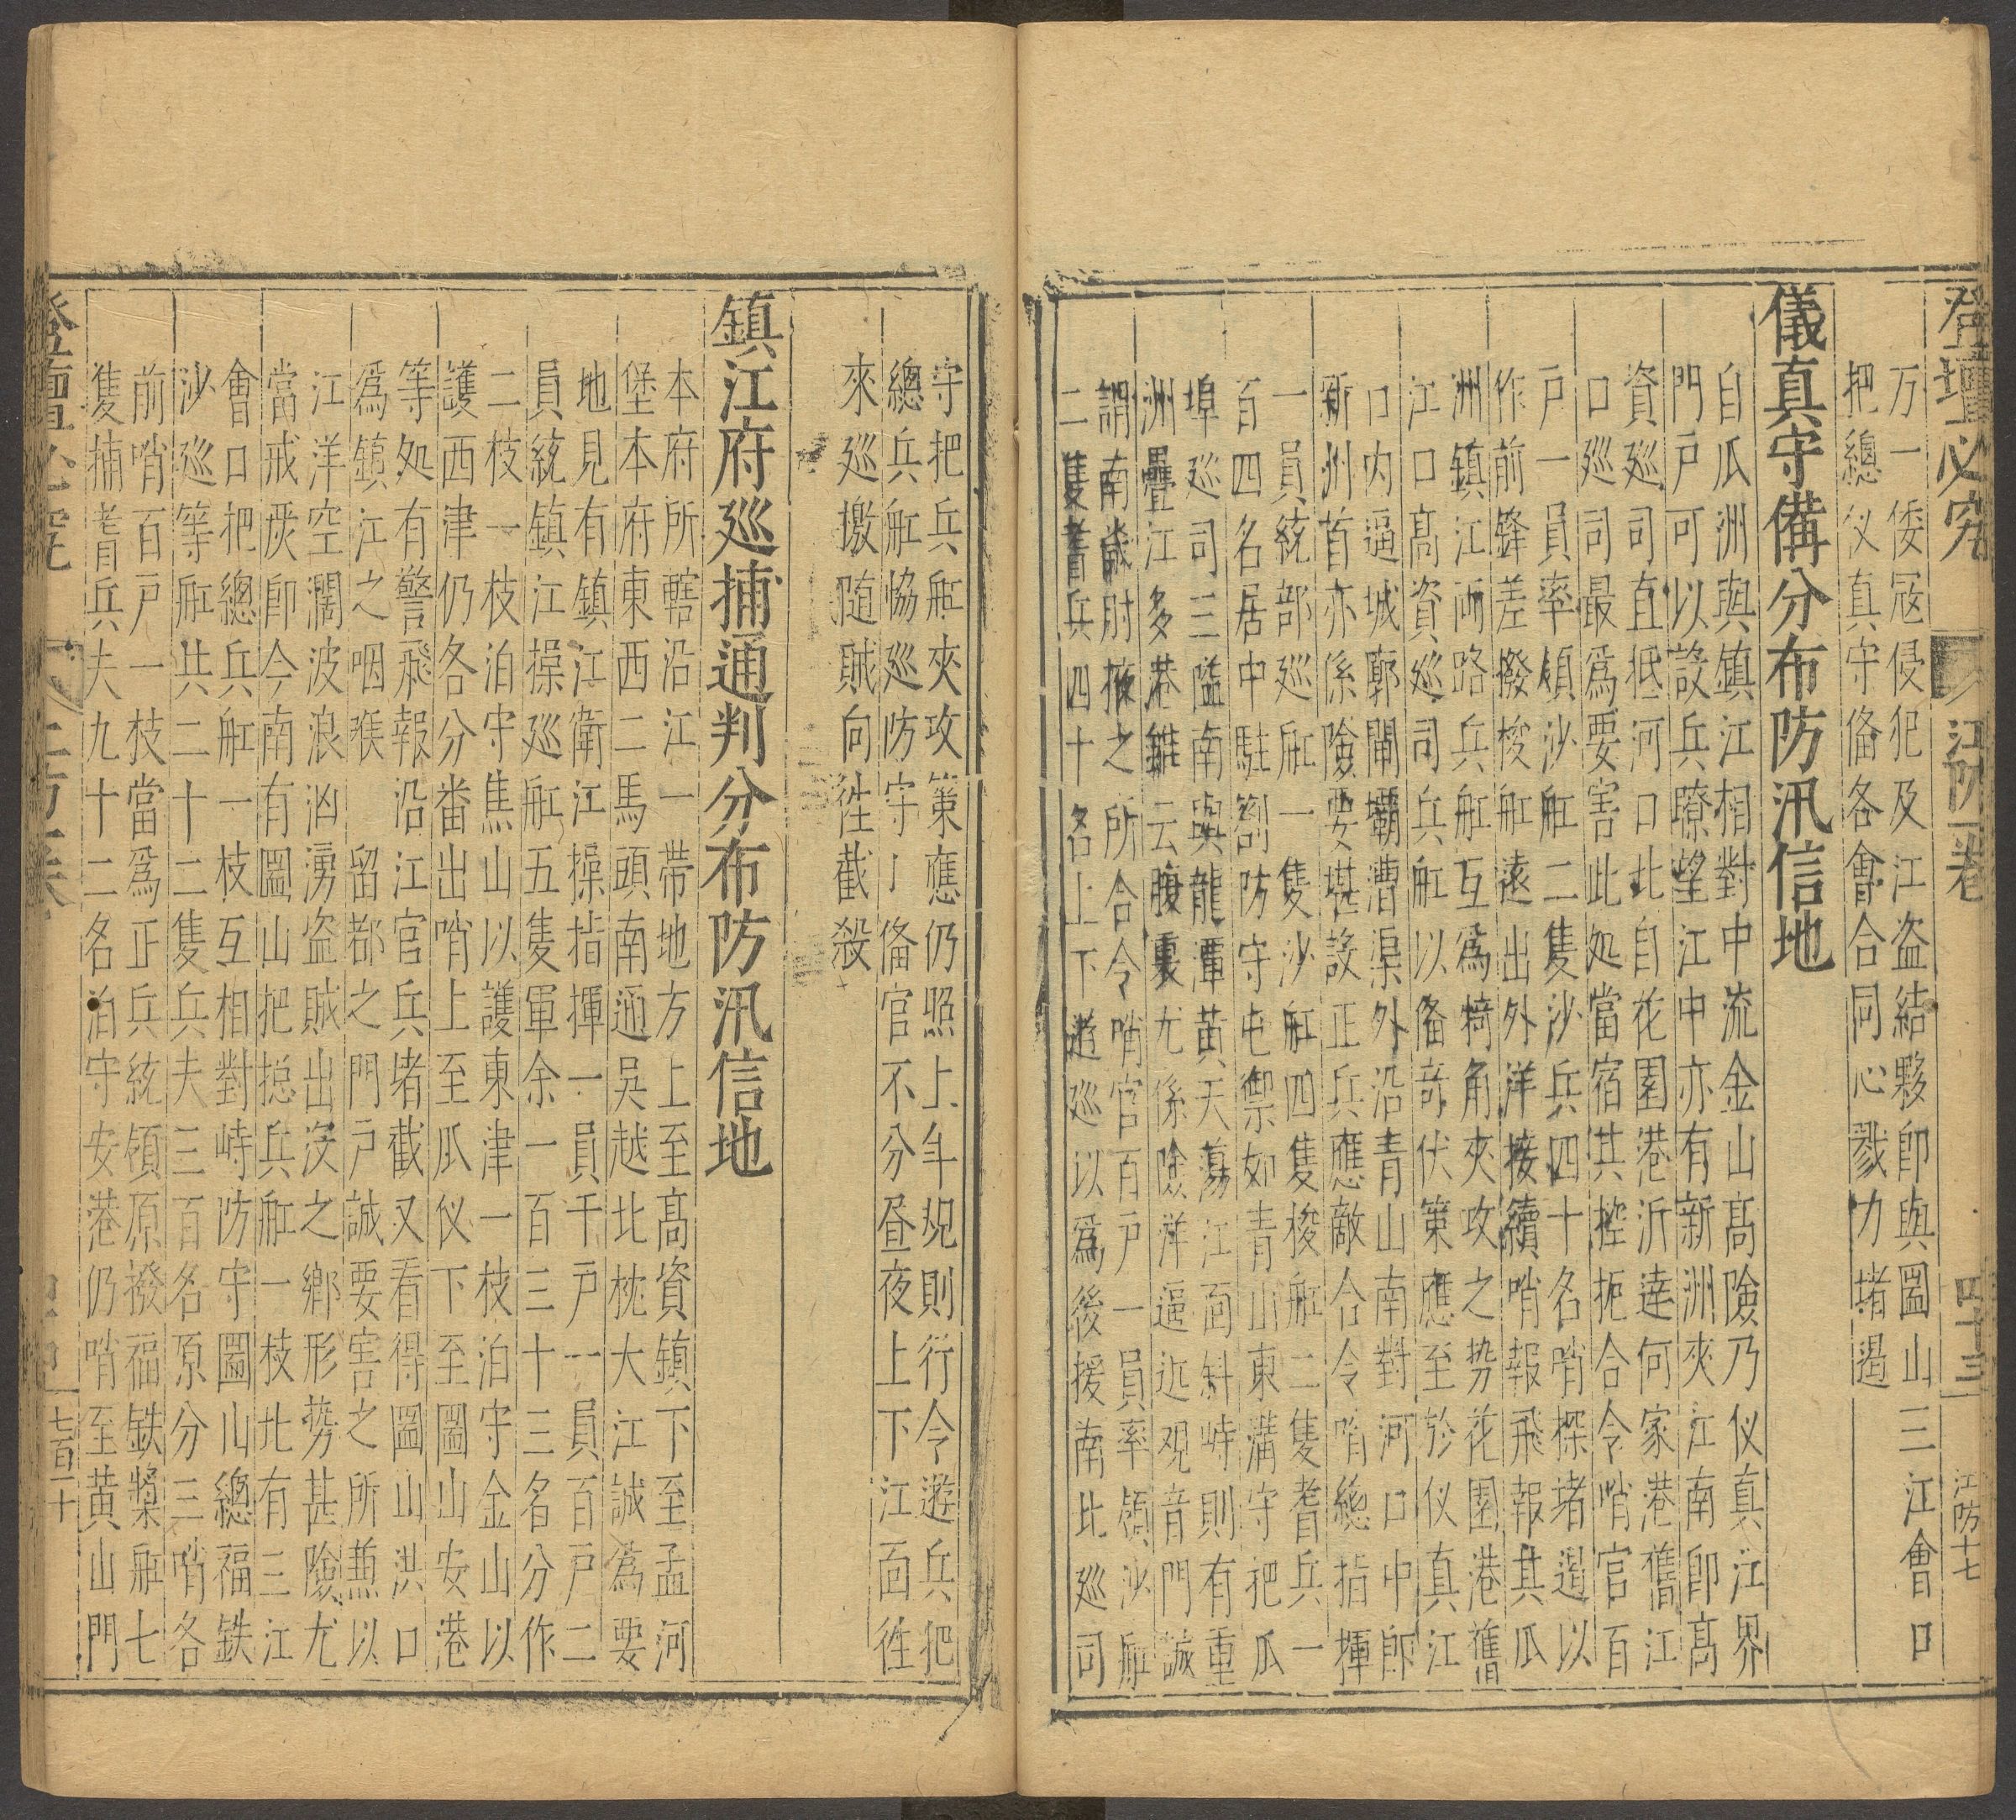 登壇必究 江防一卷 四十三 江防十七
万一倭冦侵犯及江盗結夥卽與圌山三江會口
把總仪真守俻各會合同心戮力堵遏
儀真守備分布防汛信地
自瓜洲與鎮江相對中流金山髙險乃仪真江界
門戸可以設兵瞭望江中亦有新洲夾江南卽髙
資廵司直抵河口北自花園港沂逹何家港舊江
口廵司最爲要害此処當宿其控扼合令哨官百
戸一員率領沙舡二隻沙兵四十名哨探堵遏以
作前鋒差撥梭舡遠出外洋接續哨報飛報其瓜
洲鎮江兩路兵舡互爲犄角夾攻之势花園港舊
江口髙資廵司兵舡以俻竒伏策應至於仪真江
口内逼城廓閘壩漕渠外沿青山南對河口中卽
新州首亦係險要堪設正兵應敵合令哨總指揮
一員統部廵舡一隻沙舡四隻梭舡二隻耆兵一
百四名居中駐劄防守屯禦如青山東溝守把瓜
埠廵司三隘南與龍潭黄天蕩江面斜峙則有重
洲疊江多港雖云腹裏尤係險洋逼近观音門誠
謂南畿肘掖之所合令哨官百戸一員率領沙舡
二隻耆兵四十名上下遊廵以爲後援南北廵司
守把兵舡夾攻策應仍照上年規則行令遊兵把
總兵舡恊廵防守俻官不分昼夜上下江面徃
來廵撽随賊向徃截殺
鎮江府廵捕通判分布防汛信地
本府所轄沿江一帶地方上至髙資鎮下至孟河
堡本府東西二馬頭南通吳越北枕大江誠爲要
地見有鎮江衛江操指揮一員千戸一員百戸二
員統鎮江操廵舡五隻軍余一百三十三名分作
二枝一枝泊守焦山以護東津一枝泊守金山以
護西津仍各分畨出哨上至瓜仪下至圌山安港
等処有警飛報沿江官兵堵截又看得圌山洪口
爲鎮江之咽喉留都之門戸誠要害之所兼以
江洋空濶波浪汹湧盗賊出没之鄉形勢甚險尤
當戒嚴卽今南有圌山把捴兵舡一枝北有三江
會口把總兵舡一枝互相對峙防守圌山總福鉄
沙廵等舡共二十二隻兵夫三百名原分三哨各
前哨百戸一枝當爲正兵統領原撥福鉄槳舡七
隻捕耆兵夫九十二名泊守安港仍哨至黄山門
七百二十